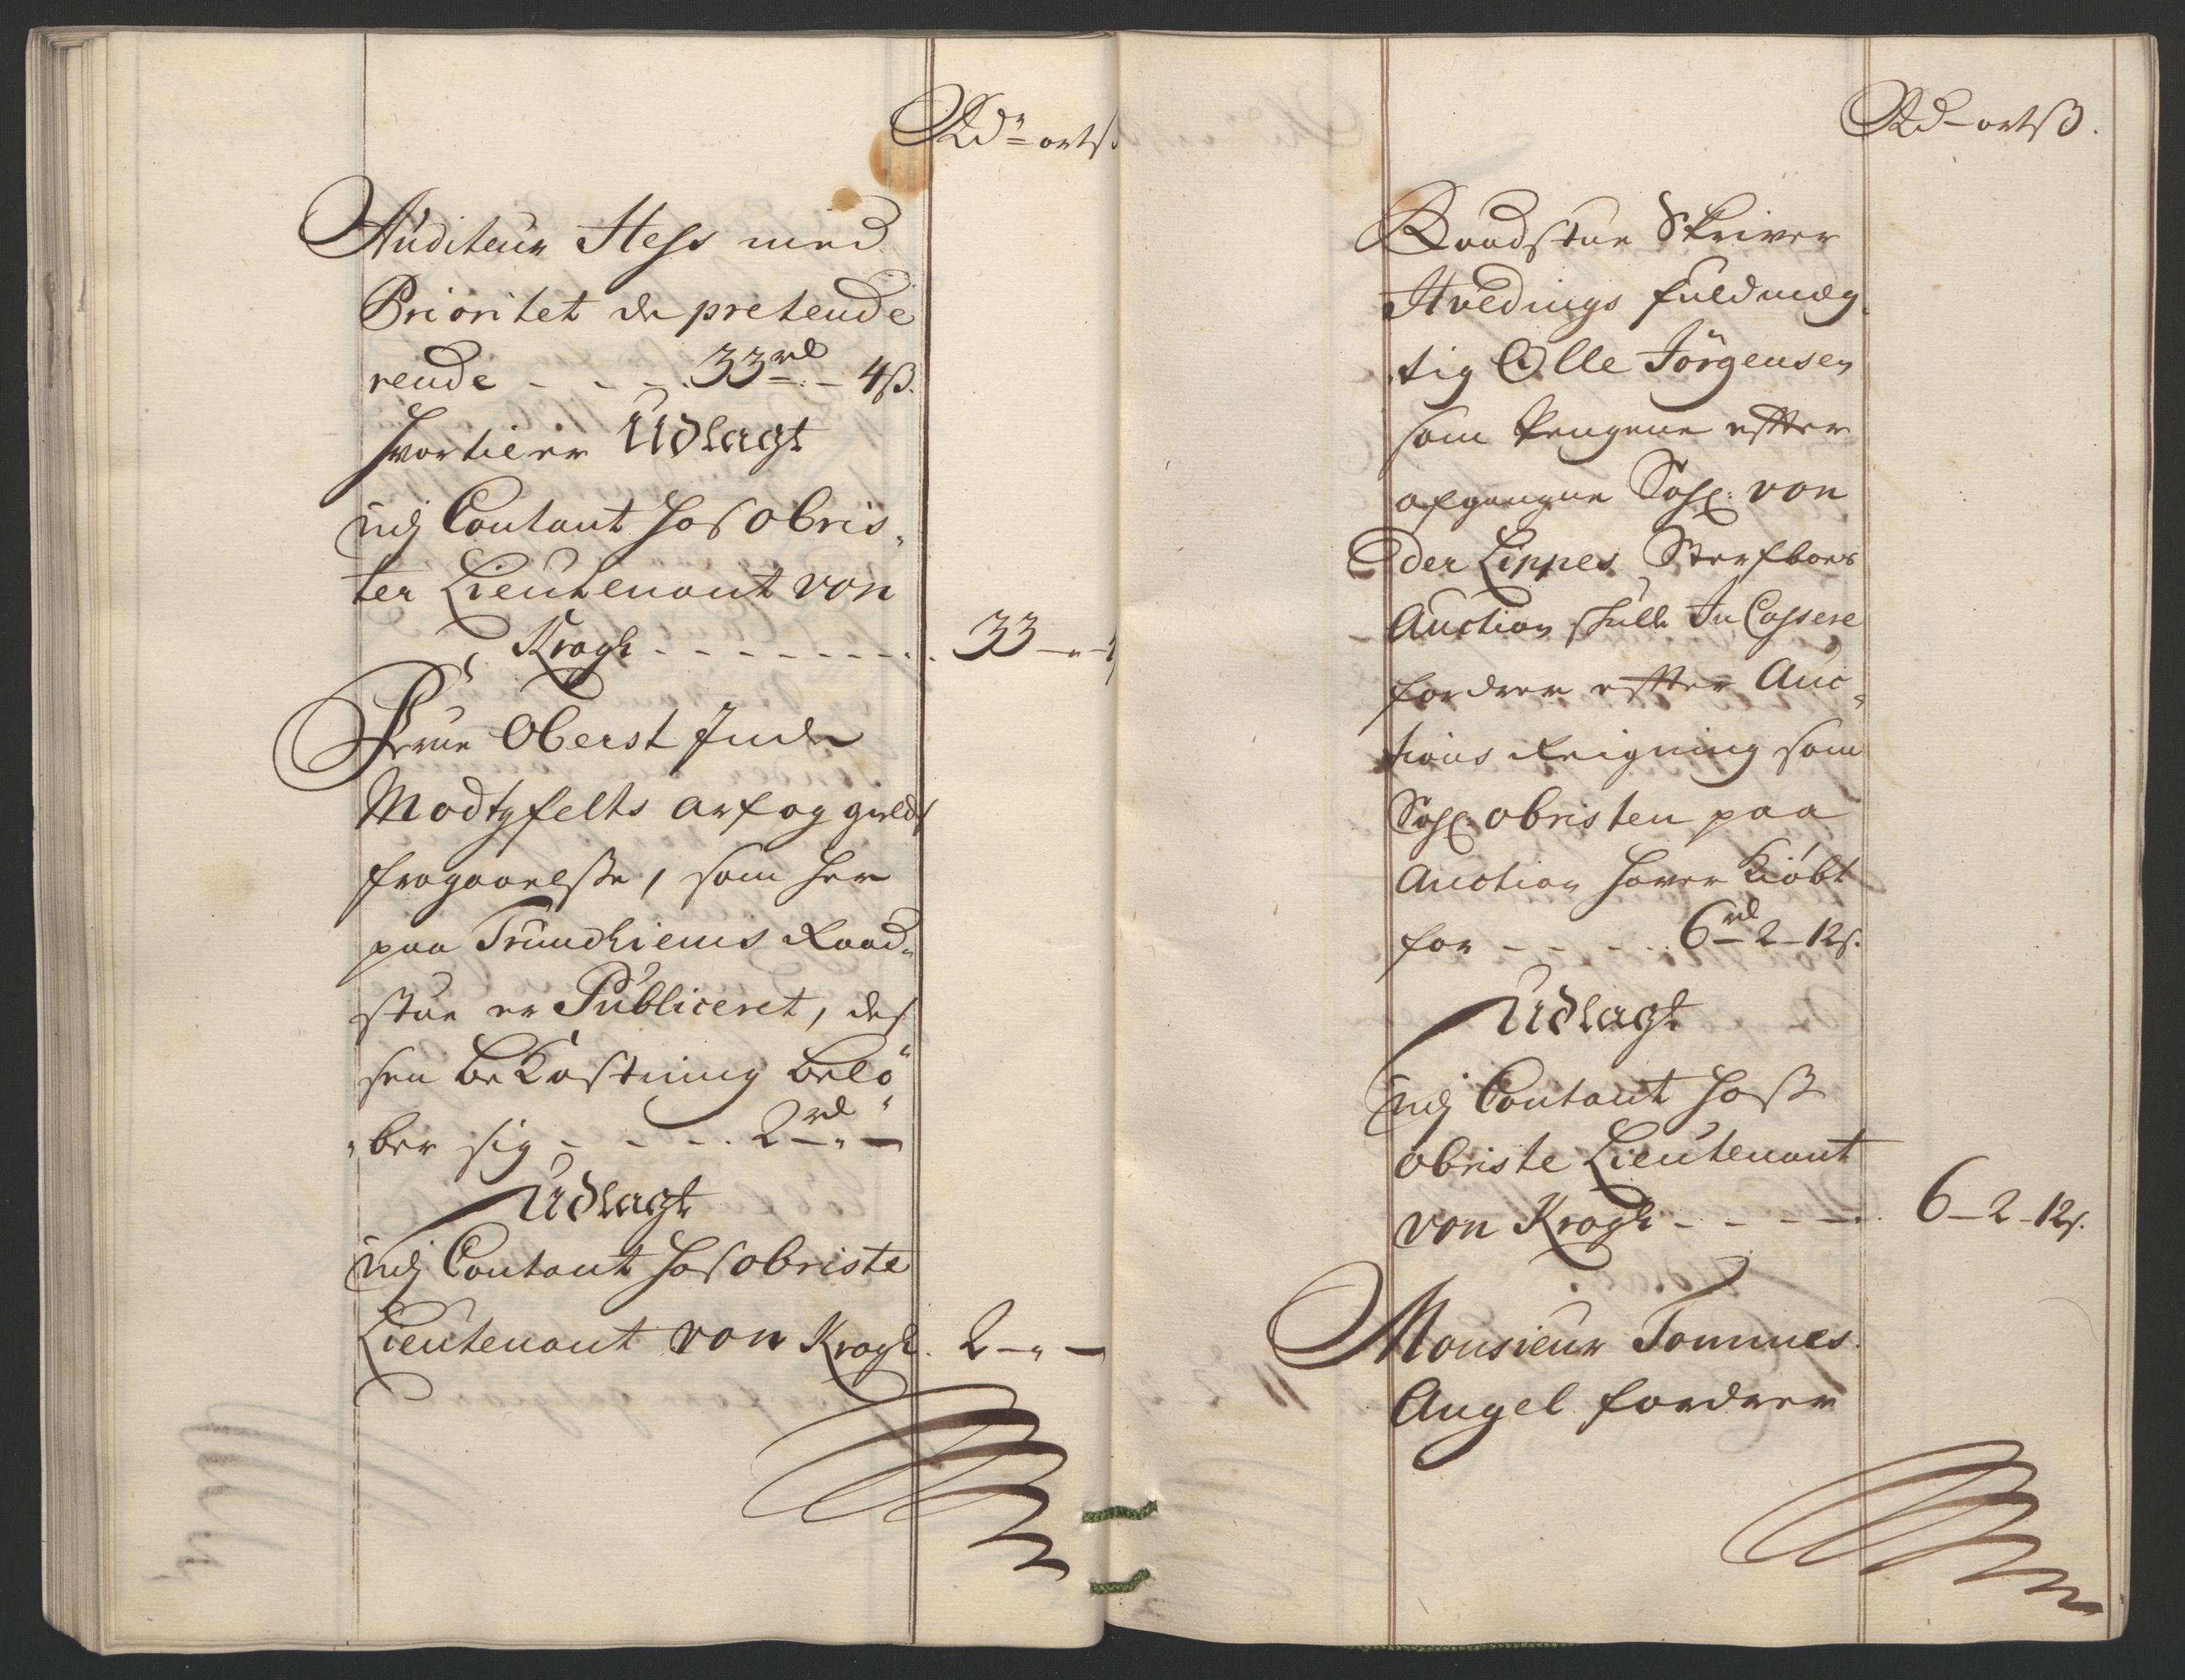 Rdr ort ß
Auditeur Hess med
Prioritet de pretende
rende - - - 33 rd - 4 ß.
hvortil er Udlagt
udj Contant hos obris-
ter Lieutenant von
Kragh - - - - - - - - 33 - " - 4
Frue Oberst Jude
Modtzfelts arf og gields
fragaaelsse, som her
paa Trundhiems Raad-
stue er Publiceret, des
sen beKostning belö
ber sig - - - - 2 rd " -
Udlagt
udj Contant hos obriste
Lieutenant von Kragh. 2 - " -
Rd - ort ß.
Raadstue Skriver
Hvedings fuldmæg-
tig Olle Jörgensen
som Pengene efter
afgangne Sahl: von
der Lippes Sterfboes
Auction skulle In Cassere
fordrer efter Auc-
tions Reigning som
Sahl: obristen paa
Auction haver Kiöbt
for - - - - 6 rd 2 - 12 s.
Udlagt
udj Contant hoß
obriste Lieutenant
von Kragh - - - - - 6 - 2 - 12 s.
Monsieur Tommes
Angel fordrer